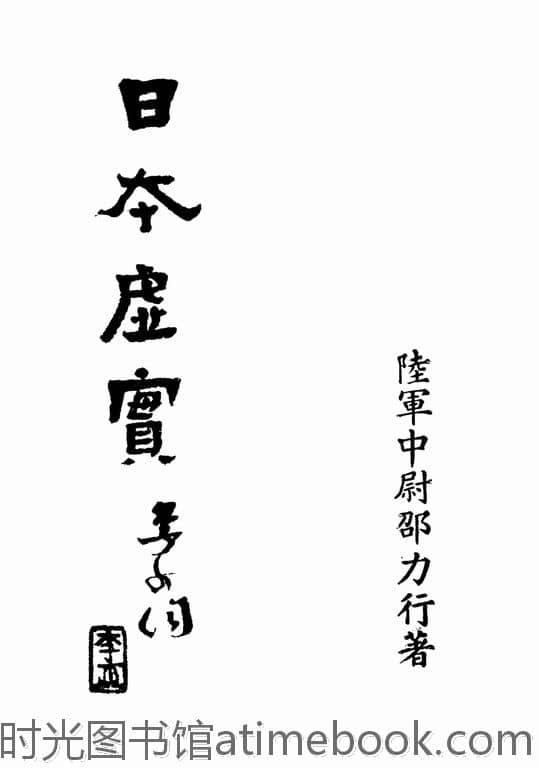 陸軍中尉邵力行著
日本虛實
时光图书馆atimebook.com